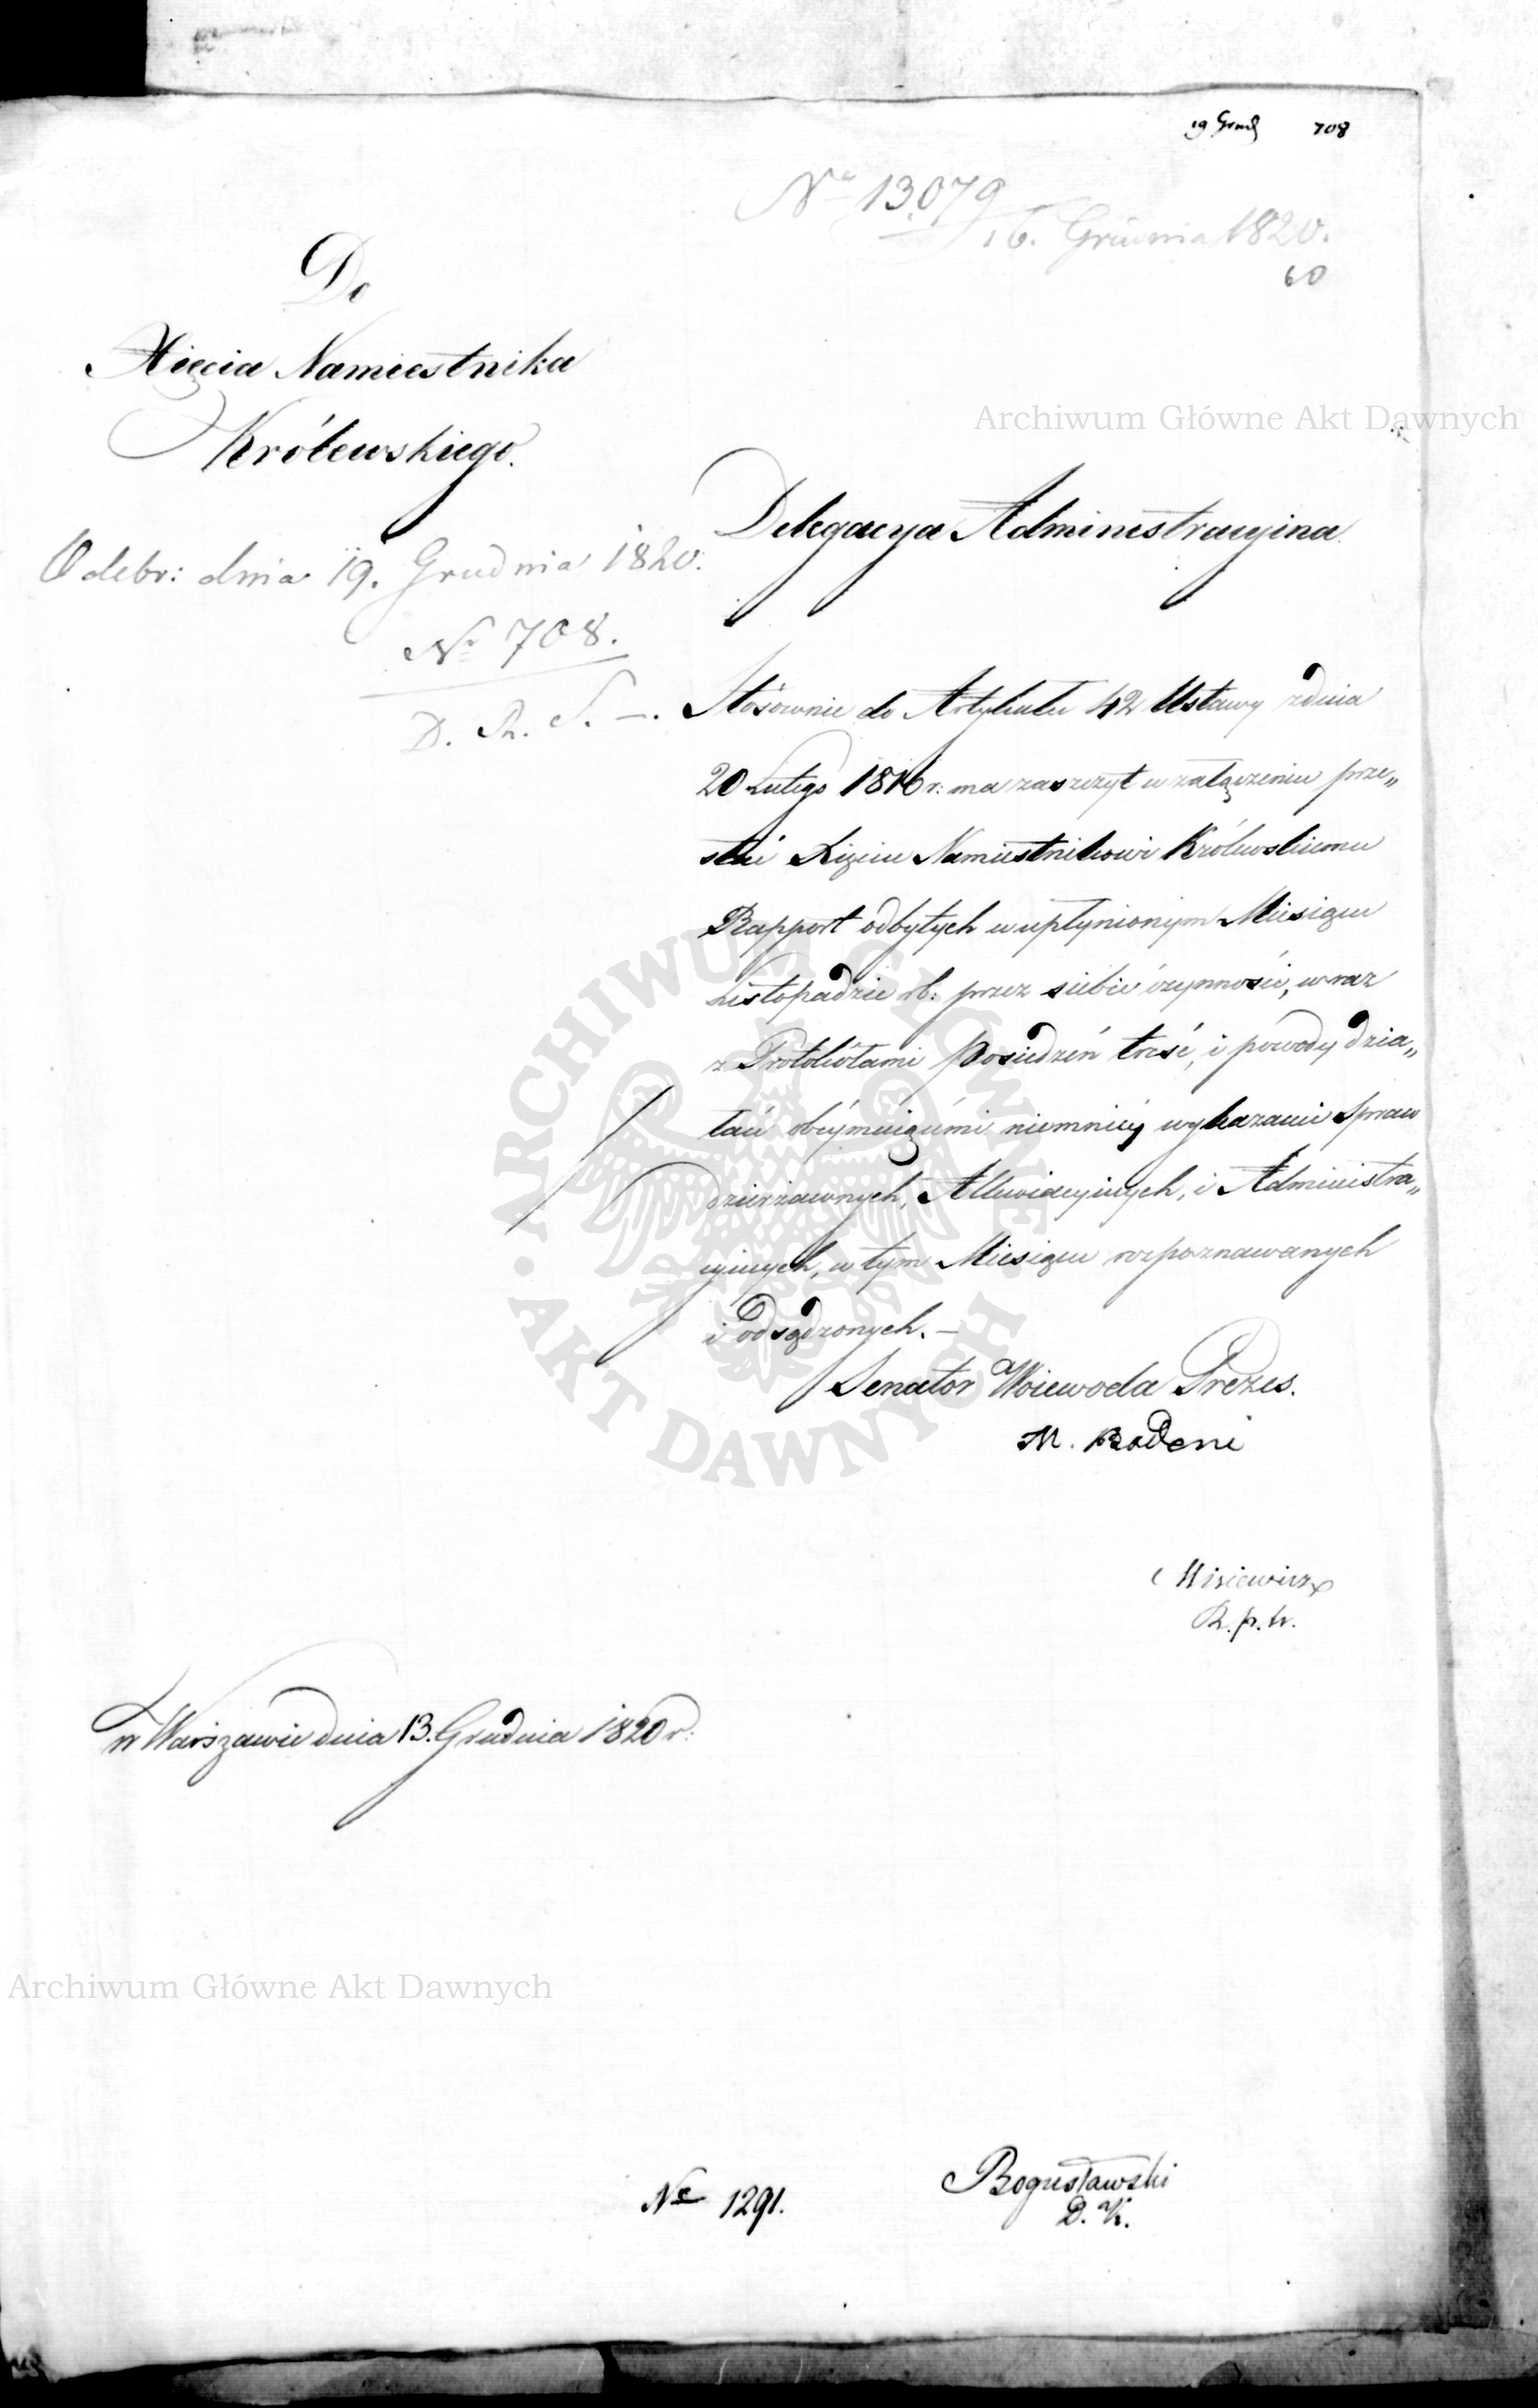 19 Grud 708
No 13,079
16. Grudnia 1820.
60
Do
Xięcia Namiestnika
Królewskiego.
Odebr: dnia 19. Grudnia 1820.
Nr 708.
D. R. S. —.
Archiwum Główne Akt Dawnych
Delegacya Administracyina
Stósownie do Artykułu 42 Ustawy zdnia
20 Lutego 1816 r: ma zaszczyt w załączeniu prze„
słać Xięciu Namiestnikowi Królewskiemu
Rapport odbytych w upłynionym Miesiącu
Listopadzie rb: przez siebie czynności, wraz
z Protokółami Posiedzeń treść, i powody dzia„
łań obeymuiącémi niemniéy wykazanie Spraw
dzierżawnych, Alluwiacyinych, i Administra„
cyinych, w tym Miesiącu rozpoznawanych
i Odsądzonych. —
Senator Woiewoda Prezes.
M. Badeni
R. p. w.
w Warszawie dnia 13. Grudnia 1820 r:
ARCHIWUM GŁÓWNE
AKT DAWNYCH
Archiwum Główne Akt Dawnych
No 1291.
Bogusławski
D. K.